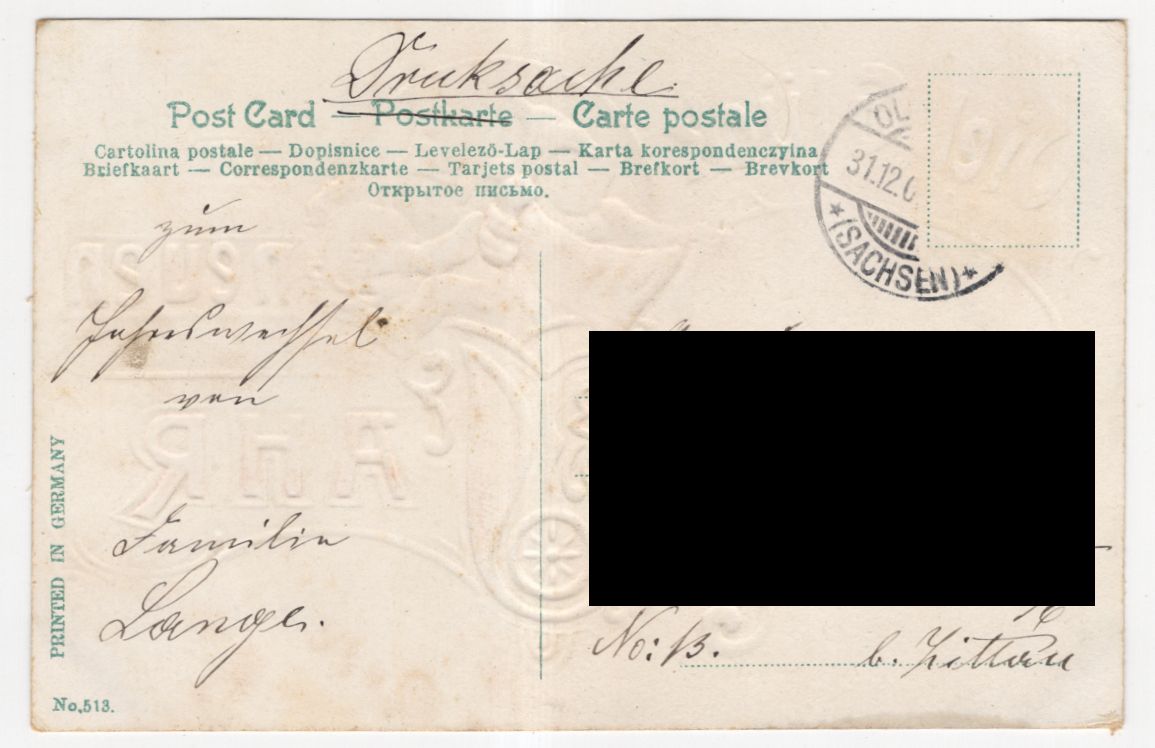 Drucksache.
Post Card — Postkarte — Carte postale
Cartolina postale — Dopisnice — Levelező-Lap — Karta korespondenczyina
Briefkaart — Correspondenzkarte — Tarjets postal — Brefkort — Brevkort
Открытое письмо.
31.12.0
* (SACHSEN) *
zum
Jahreswechsel
von
Familie
Lange.
No: 13.
b. Zittau
PRINTED IN GERMANY
No.513.